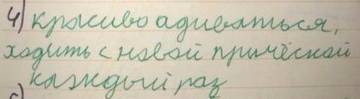 4) красиво адиваться,
ходить с новой причёской
каждый раз